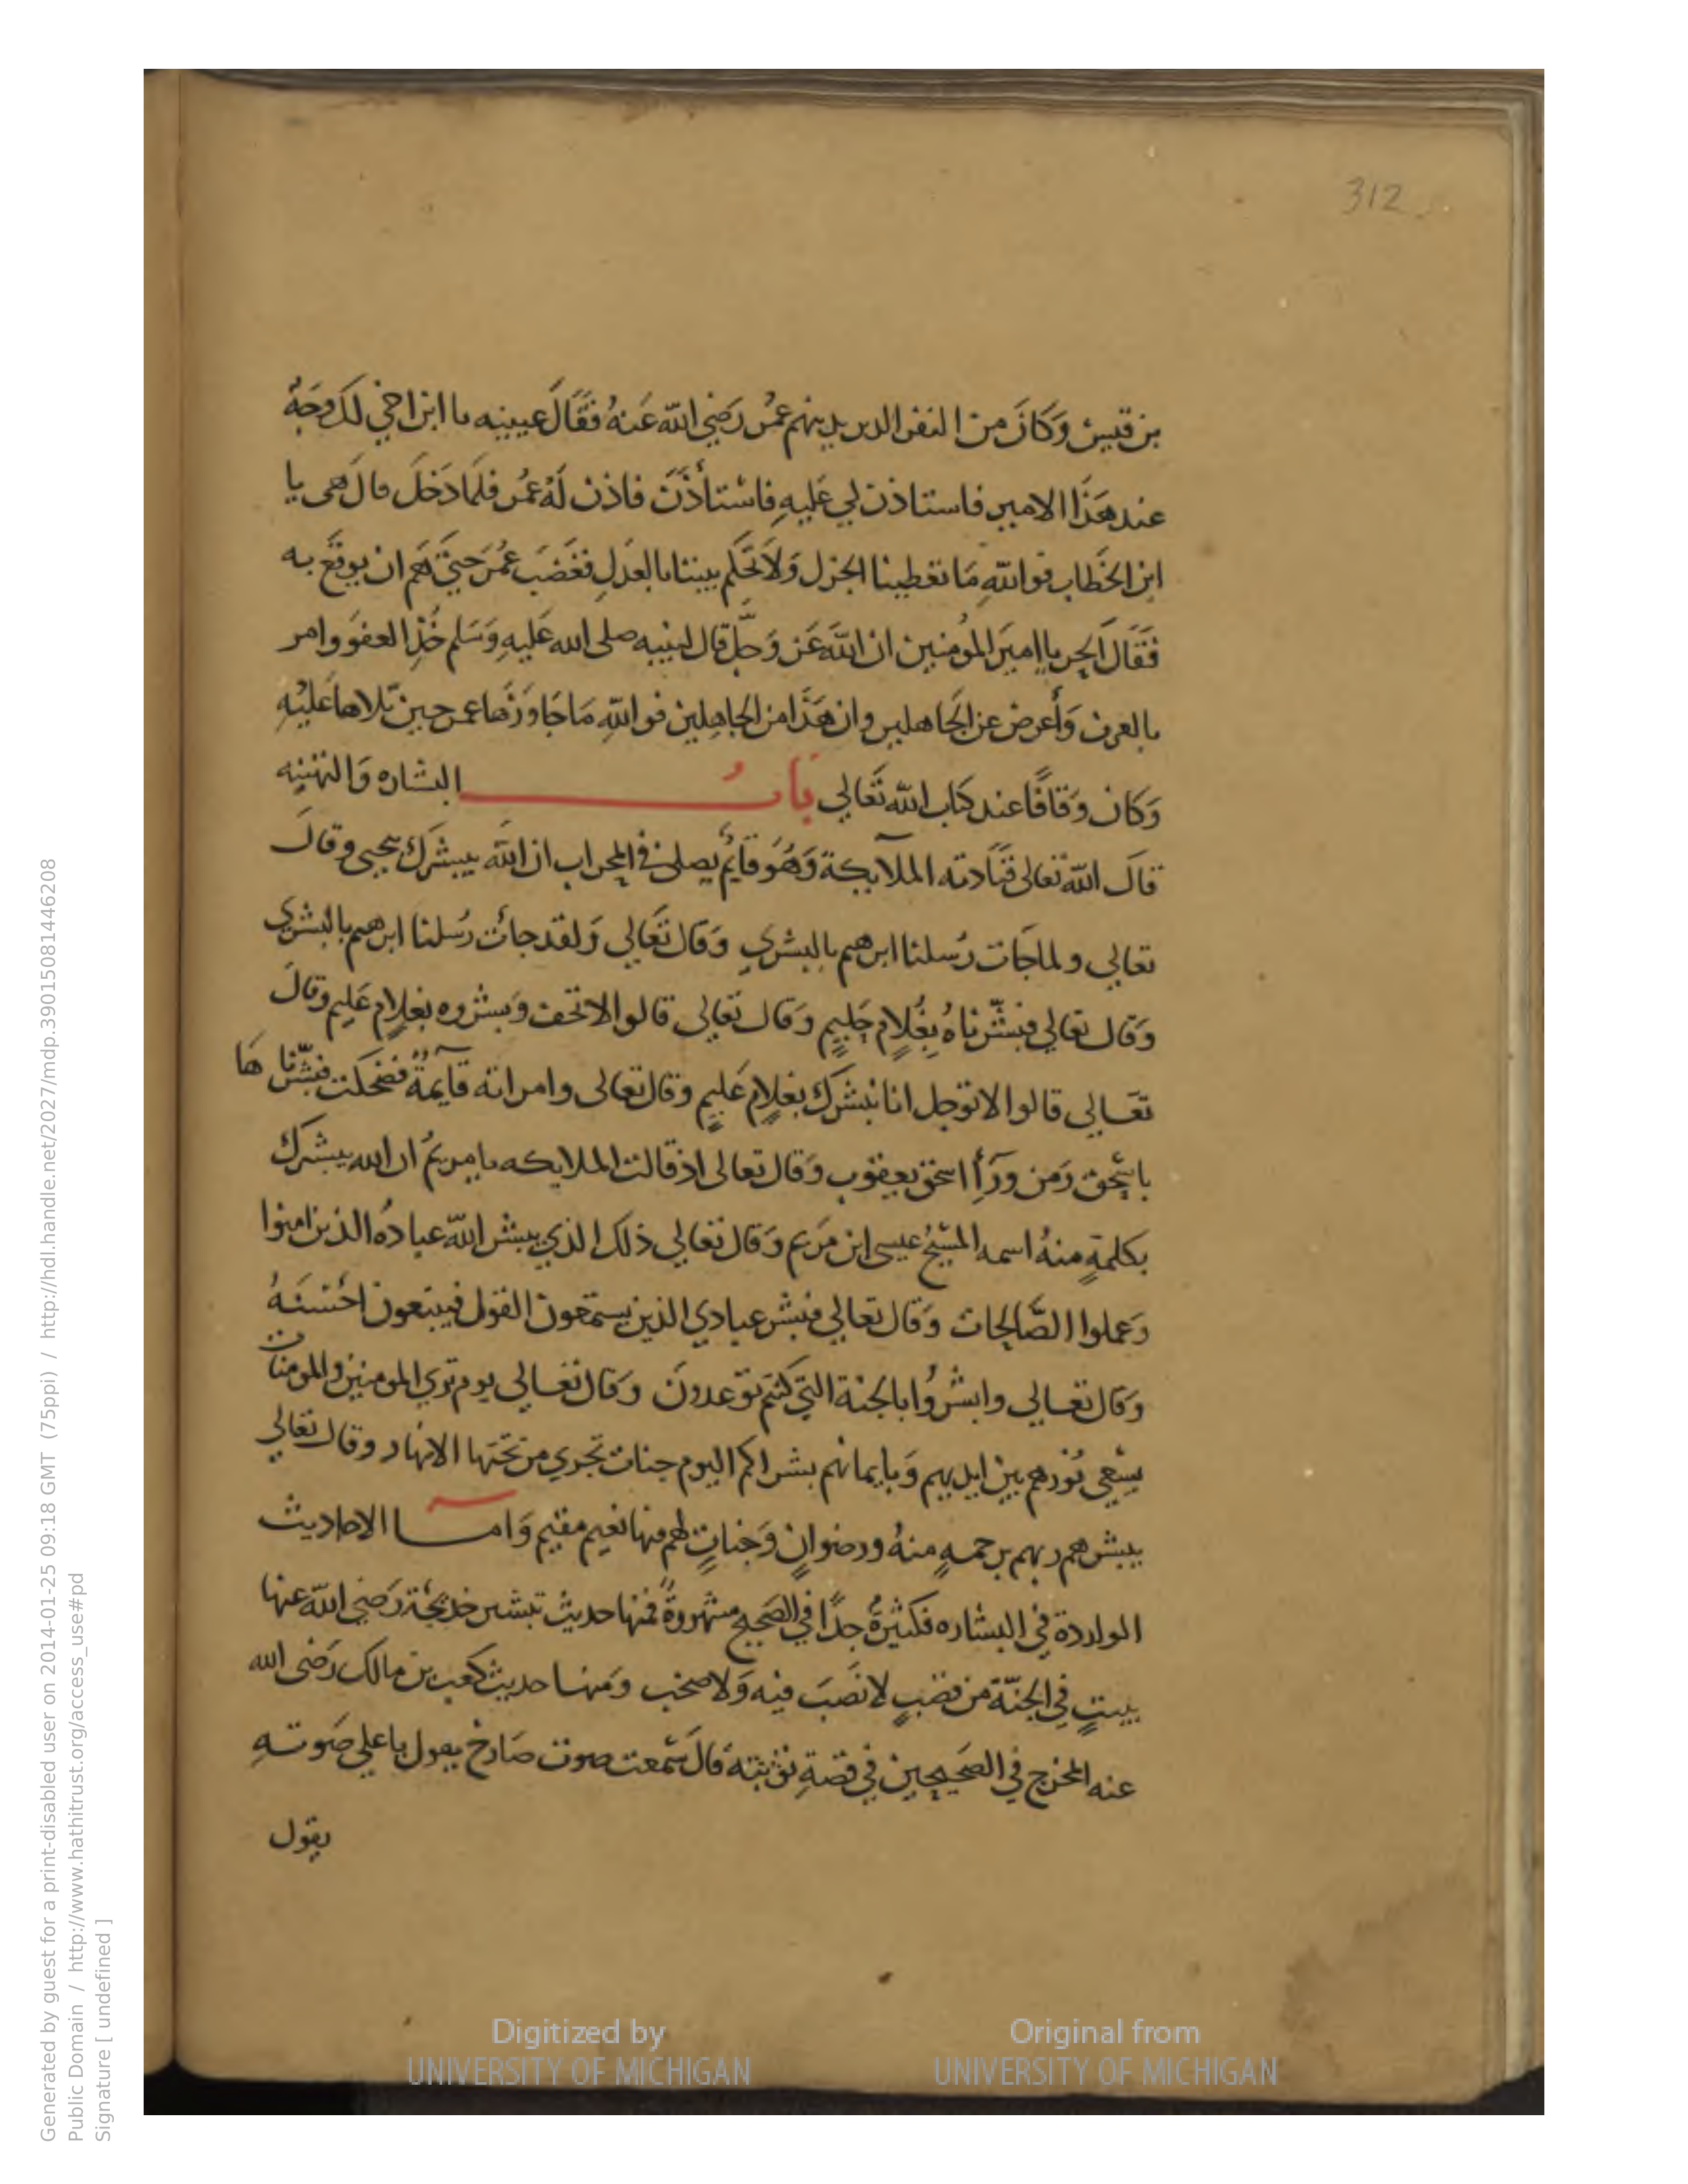 312
بن قيس وَكَانَ من النفر الدين يدينهم عمُر رَضِي الله عَنهُ فقَالَ عيينه يا ابن اخي لك وَجَهٌ
عند هَذَا الامير فاستاذن لي عَليهِ فاستأذَنَ فاذن لَهُ عمُر فلمَا دَخلَ قالَ هى يا
ابن الخَطاب فواللهِ مَا تعَطينا الجزل وَلاَ تحَكم بيننا بالعَدلِ فغَضَب عُمرَ حَتيَّ هَم ان يوقعَ به
فَقَالَ الحر يا اميرَ المؤمنين ان اللهَ عَز وَجلَّ قال لنبيه صلى الله عَليهِ وَسَلم خُذِ العفوَ وامر
بالعرف وَأَعرض عن الجَاهلين وان هَذَا من الجاهِلين فواللهِ مَا جَاوَزَها عمر حين تَلاها عَليْهِ
وَكان وَقافًا عند كتاب الله تَعَالي بَابُ البشاره وَالتهنيه
قالَ الله تعَالى فنَادته الملآيكة وَهُوَ قايُم يصلى في المحراب ان اللهَ يبشرَك بيحيى وقالَ
تعالي ولما جَات رُسلنا ابرهيم بالبشري وَقال تَعَالي وَلقد جأت رُسلنا ابرهيم بالبشري
وَقال تعالي فبشّرناهُ بِغُلامٍ حَليمٍ وَقال تعَالى قالوا لا تخف وَبشروه بغلامٍ عَليم وقالَ
تعَالي قالوا لا توجل انا نبشرَك بغلامٍ عَليمٍ وقال تعالى وامراته قآيمةٌ فضحكت فبشّرنا هَا
باسحق وَمن وَرَآأ اسحق يعقوب وَقال تعالى اذ قالت الملايكه يا مريمُ ان الله يبشرك
بكلمةٍ منهُ اسمه المسيحُ عيسى ابن مَريم وَقال تعَالي ذلك الذي يبشر الله عبادهُ الذين امنوا
وَعملوا الصَّالِحات وَقال تعَالي فبشر عبادي الذين يستمعون القول فيتبعون احْسَنهُ
وَقال تعَالي وابشرُوا بالجنة التي كنتم توعدونَ وَقال تعَالي يوم تري المومنين والمومنات
يسْعي نُورهم بين ايديهم وَبايمانهم بشراكم اليوم جنات تجري من تحتها الانهار وقال تعَالي
يبشرهم ربهم برحمهٍ منهُ ورضوانٍ وَجناتٍ لهم فيها نعيم مقيم وَامـــا الاحاديث
الواردة في البشاره فكثيرةٌ جدًّا في الصَحيح مشهروةٌ فمنها حديث تبشير خديجَة رَضِي الله عنها
ببيتٍ في الجنّة من قصَبٍ لا نصَبَ فيه وَلا صخب وَمنها حديث كعب بن مالك رَضى الله
عنه المخرج في الصَحيحين في قصةِ تَوْبته قالَ سَمعت صوت صَارخ يقول باعلي صَوتهِ
يقول
Generated by guest for a print-disabled user on 2014-01-25 09:18 GMT (75ppi) / http://hdl.handle.net/2027/mdp.39015081446208
Public Domain / http://www.hathitrust.org/access_use#pd
Signature [ undefined ]
Digitized by
UNIVERSITY OF MICHIGAN
Original from
UNIVERSITY OF MICHIGAN